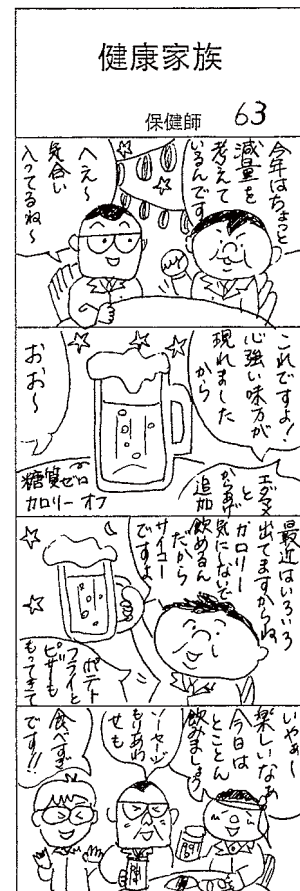 健康家族
保健師 63
今年はちょっと
減量を
考えて
いるんです
へえ〜
気合い
入ってるね〜
これですよ!
心強い味方が
現れました
から
おお〜
糖質ゼロ
カロリーオフ
エダマメ
と
からあげ
追加
最近はいろいろ
出てますからね
カロリー
気にしないで
飲めるん
だから
サイコー
ですよ
ポテト
フライと
ピザも
もってきて
いやぁー
楽しいなぁ
今日は
とことん
飲みましょう
ソーセージ
もりあわ
せも
食べすぎ
です!!